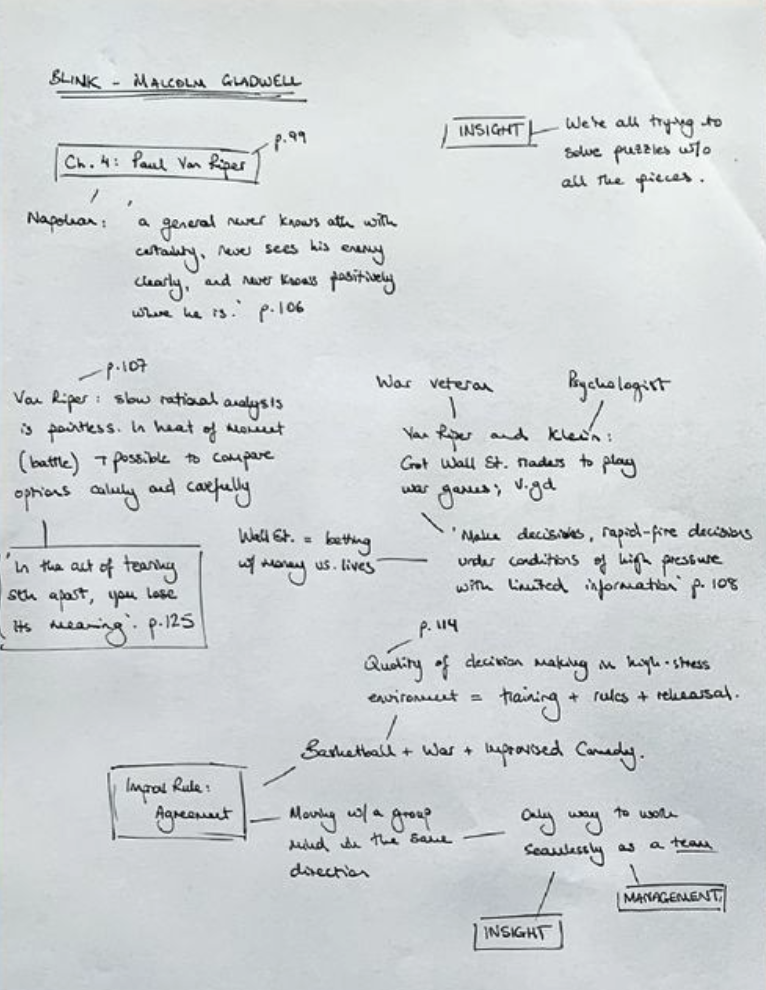 BLINK - MALCOLM GLADWELL
p.99
Ch. 4: Paul Van Riper
INSIGHT
We're all trying to
solve puzzles w/o
all the pieces.
Napolean: 'a general never knows ath with
certainty, never sees his enemy
clearly, and never knows positively
where he is.' p.106
p.107
Van Riper: slow rational analysis
is pointless. In heat of moment
(battle) ¬ possible to compare
options calmly and carefully
'In the act of tearing
sth apart, you lose
its meaning'. p.125
War veteran
Psychologist
Van Riper and Klein:
Got Wall St. traders to play
war games; v.gd
'Make decisions, rapid-fire decisions
under conditions of high pressure
with limited information' p.108
Wall St. = betting
w/ money vs. lives
p.114
Quality of decision making in high-stress
environment = training + rules + rehearsal.
Basketball + War + Improvised Comedy.
Improv Rule:
Agreement
Moving w/ a group
mind in the same
direction
Only way to work
seamlessly as a team
MANAGEMENT
INSIGHT